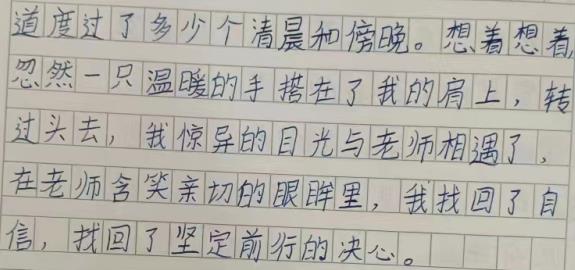 道度过了多少个清晨和傍晚。想着想着,
忽然一只温暖的手搭在了我的肩上，转
过头去，我惊异的目光与老师相遇了，
在老师含笑亲切的眼眸里，我找回了自
信，找回了坚定前行的决心。